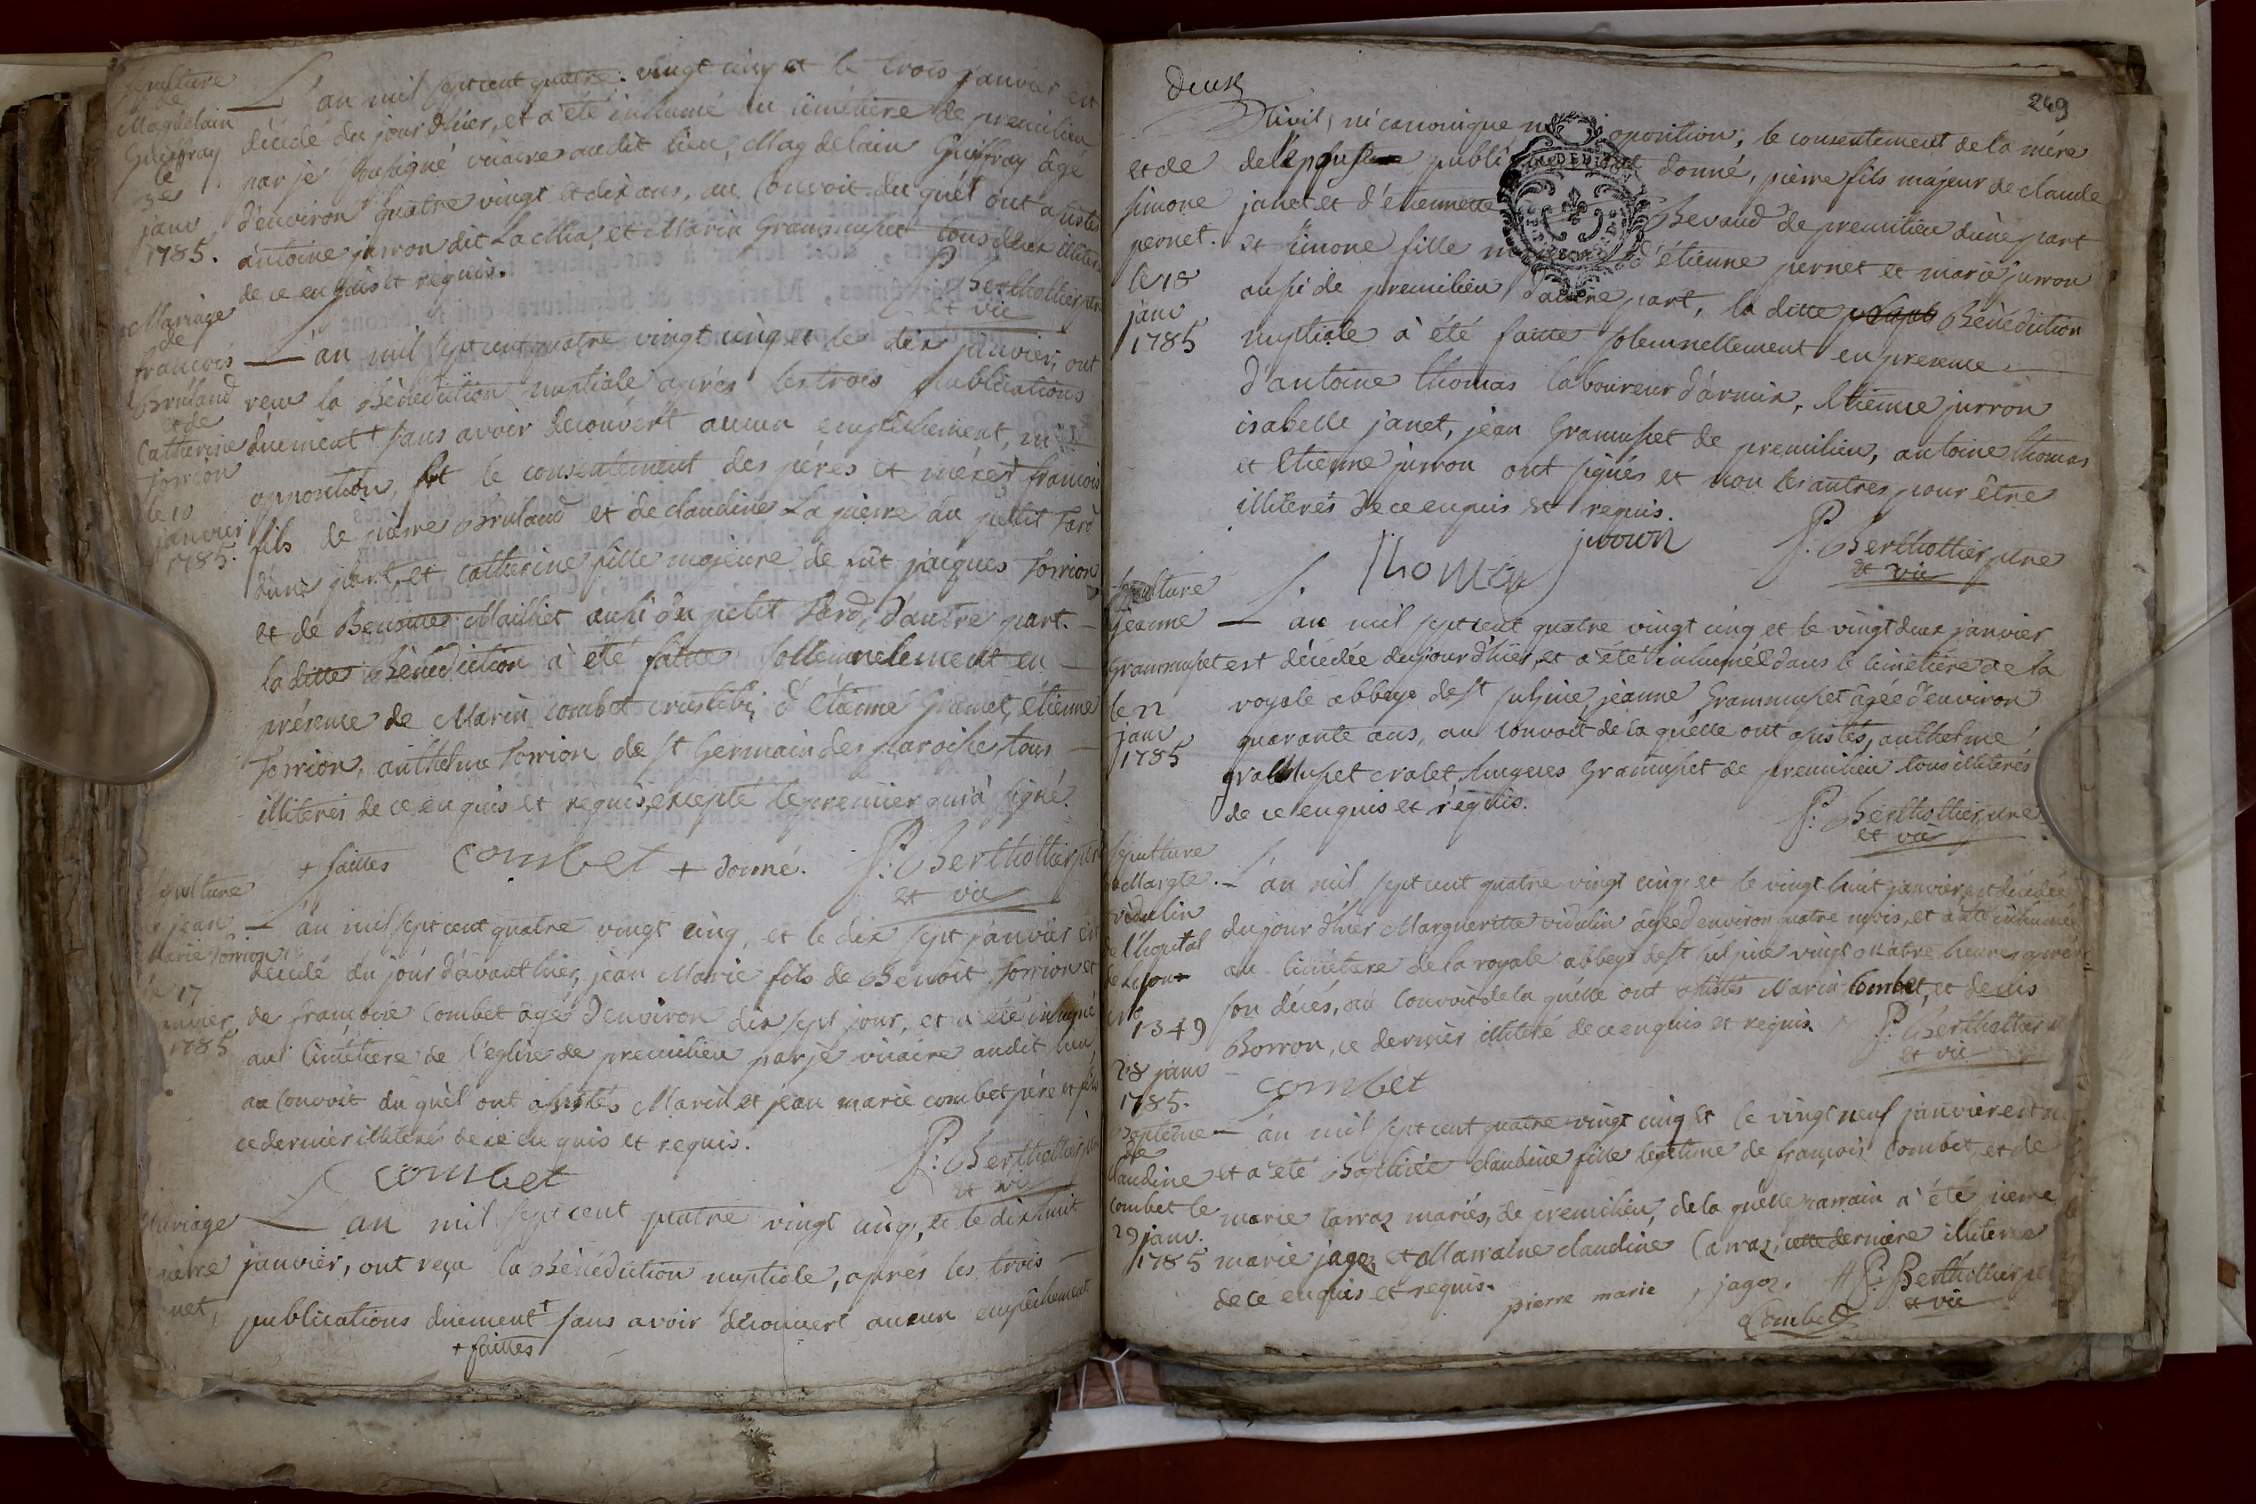 sepulture
de
Magdelain
Guiffray
le
3e
janv
1785.
L'an mil sept cent quatre vingt cinq et le trois janvier est
décédé du jour d'hier, et a été inhumé au cimétiere de premilieu
par je soussigné vicaire audit lieu, Magdelain Guiffray âgé
d'environ quatre vingt et dix ans, au convoit du quél ont assistés
antoine jurron dit La Mia, et Marin Grammusset tous deux illiterés
de ce enquis et requis.
P: Berthollier ptre
et vic
Mariage
de
françois
Bruland
et de
Catherine
Torrion
le 10
janvier
1785.
L'an mil sept cent quatre vingt cinq et le dix janvier, ont
reçu la Bénédiction nuptiale aprés les trois publications
duement + sans avoir decouvért aucun empêchement, ni
opposition, et le consentement des péres et méres + francois
fils de piérre Bruland et de claudine La pierre du petit Tard
d'une part, et catherine fille majeure de fût jacques Torrion
et de Maillet aussi du petit Tard, d'autre part.
la ditte Bénédiction à été faitte sollemnelement en
présence de Marin Combet d'étienne Gramet, étienne
Torrion, anthelme Torrion de st Germain des paroisses, tous
illiterés de ce enquis et requis, excepté le premier qui à signé.
+ faittes combet + donné. P: Berthollier ptre
et vic
Sepulture
de jean
Marie Torrion
le 17
janvier
1785
L'an mil sept cent quatre vingt cinq, et le dix sept janvier est
décedé du jour d'avant hier, jean Marie fils de Benoit Torrion et
de françoise Combet agé d'environ dix sept jour, et a été inhumé
au cimétiere de l'eglise de premilieu par je vicaire audit lieu,
au Convoit du quél ont assistés Marin et jean marie combet pére et fils
ce dernier illiterés de ce enquis et requis.
combet
P: Berthollier ptre
et vic
Mariage
pierre
janet,
L'an mil sept cent quatre vingt cinq, et le dix huit
janvier, ont reçu la Bénédiction nuptiale, aprés les trois
publications duement + sans avoir découvert aucun empêchement
+ faittes
Deux
249
et de
simone
pernet.
le 18
janv
1785
Civil, ni canonique ni oposition; le consentement de la mére
donné, piérre fils majeur de claude
janet et d'étiennette Bevand de premilieu d'une part
et simone fille d'étienne pernet et marie jurron
aussi de premilieu d'autre part, la ditte Bénédiction
nuptiale à été faitte solemnellement en presence
d'antoine thomas laboureur d'armix, étienne jurron
isabelle janet, jean Grammusset de premilieu, antoine thomas
et étienne jurron ont signés et non les autres pour être
illiterés de ce enquis et requis.
Thomas jurron P: Berthollier ptre
et vic
Sepulture
jeanne
Grammusset
le 22
janv
1785
L'an mil sept cent quatre vingt cinq et le vingt deux janvier
est décedée du jour d'hier, et a été inhumée dans le cimétiére de la
royale abbaye de st sulpice, jeanne Grammusset agée d'environ
quarante ans, au convoit de la quélle ont assistés, anthelme
Grammusset cralet, hugues Grammusset de premilieu tous illiterés
de ce enquis et réquis.
P: Berthollier ptre
et vic
Sepulture
Margte
vidulin
de l'hopital
de Lyon
No
1349
28 janv
1785.
L'an mil sept cent quatre vingt cinq, et le vingt huit janvier, est décedée
du jour d'hier Margueritte vidulin agée d'environ quatre mois, et à été inhumée
au cimétiere de la royale abbaye de st sulpice vingt quatre heures aprés
son décés, au convoit de la quélle ont assistés Marin Combet, et denis
Borron, ce dernier illiteré de ce enquis et requis.
P: Berthollier
et vic
combet
Baptême
de
claudine
combet le
29 janv.
1785
L'an mil sept cent quatre vingt cinq et le vingt neuf janvier est née
et à été Baptisée claudine fille legitime de françois Combet, et de
marie Carraz mariés, de premilieu, de la quélle parrain à été pierre
marie jagoz et Marraine claudine Carraz, cette derniére illiterée
de ce enquis et requis.
pierre marie jagoz. P: Berthollier ptre
Combet et vic